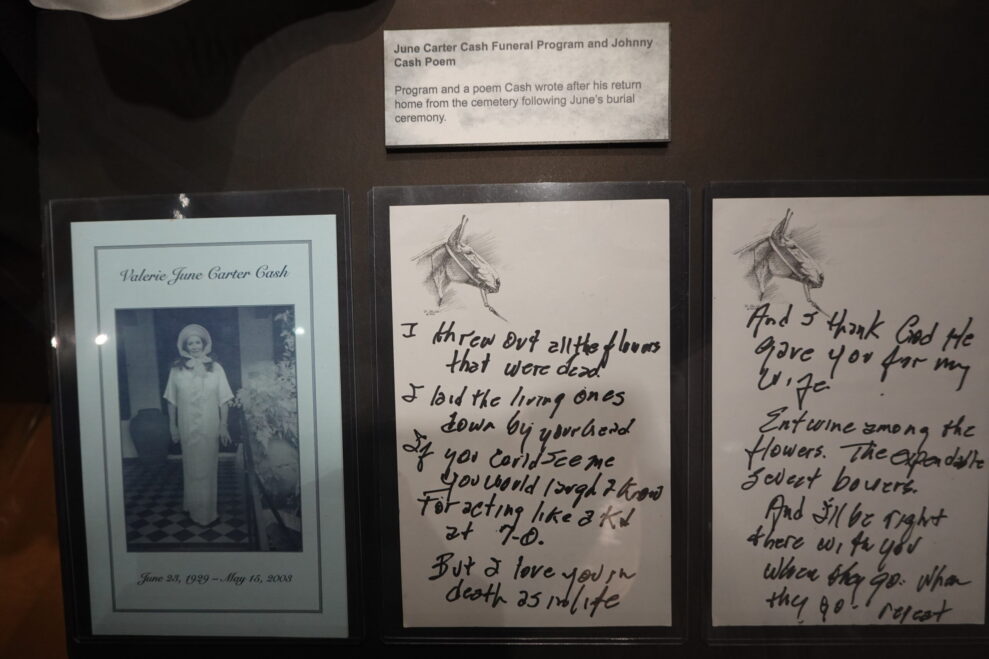 June Carter Cash Funeral Program and Johnny
Cash Poem
Program and a poem Cash wrote after his return
home from the cemetery following June's burial
ceremony.
Valerie June Carter Cash
June 23, 1929 – May 15, 2003
I threw out all the flowers
that were dead
I laid the living ones
down by your head
If you could see me
you would laugh I know
For acting like a kid
at 7-0.
But I love you in
death as in life
And I thank God He
gave you for my
wife
Entwine among the
flowers. The expendable
sweet bowers.
And I'll be right
there with you
when they go. when
they go. repeat